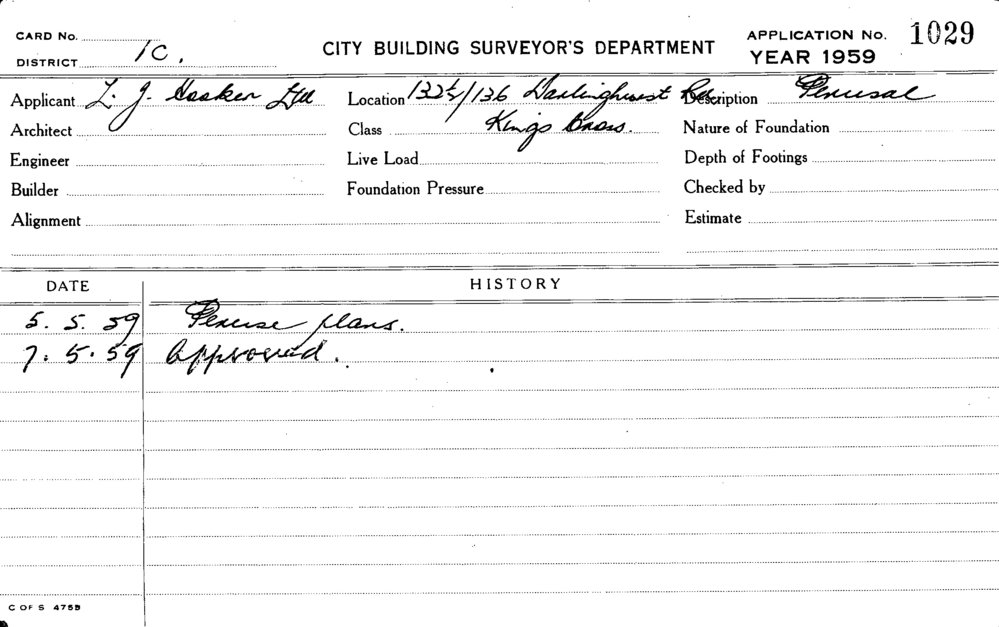 CARD No.
DISTRICT 1C.
CITY BUILDING SURVEYOR'S DEPARTMENT
APPLICATION No. 1029
YEAR 1959
Applicant L. J. Hooker Ltd Location 132½/136 Darlinghurst Rd. Description Perusal
Architect Class Kings Cross. Nature of Foundation
Engineer Live Load Depth of Footings
Builder Foundation Pressure Checked by
Alignment Estimate
DATE HISTORY
5. 5. 59 Peruse plans.
7. 5. 59 Approved.
C OF S 475B